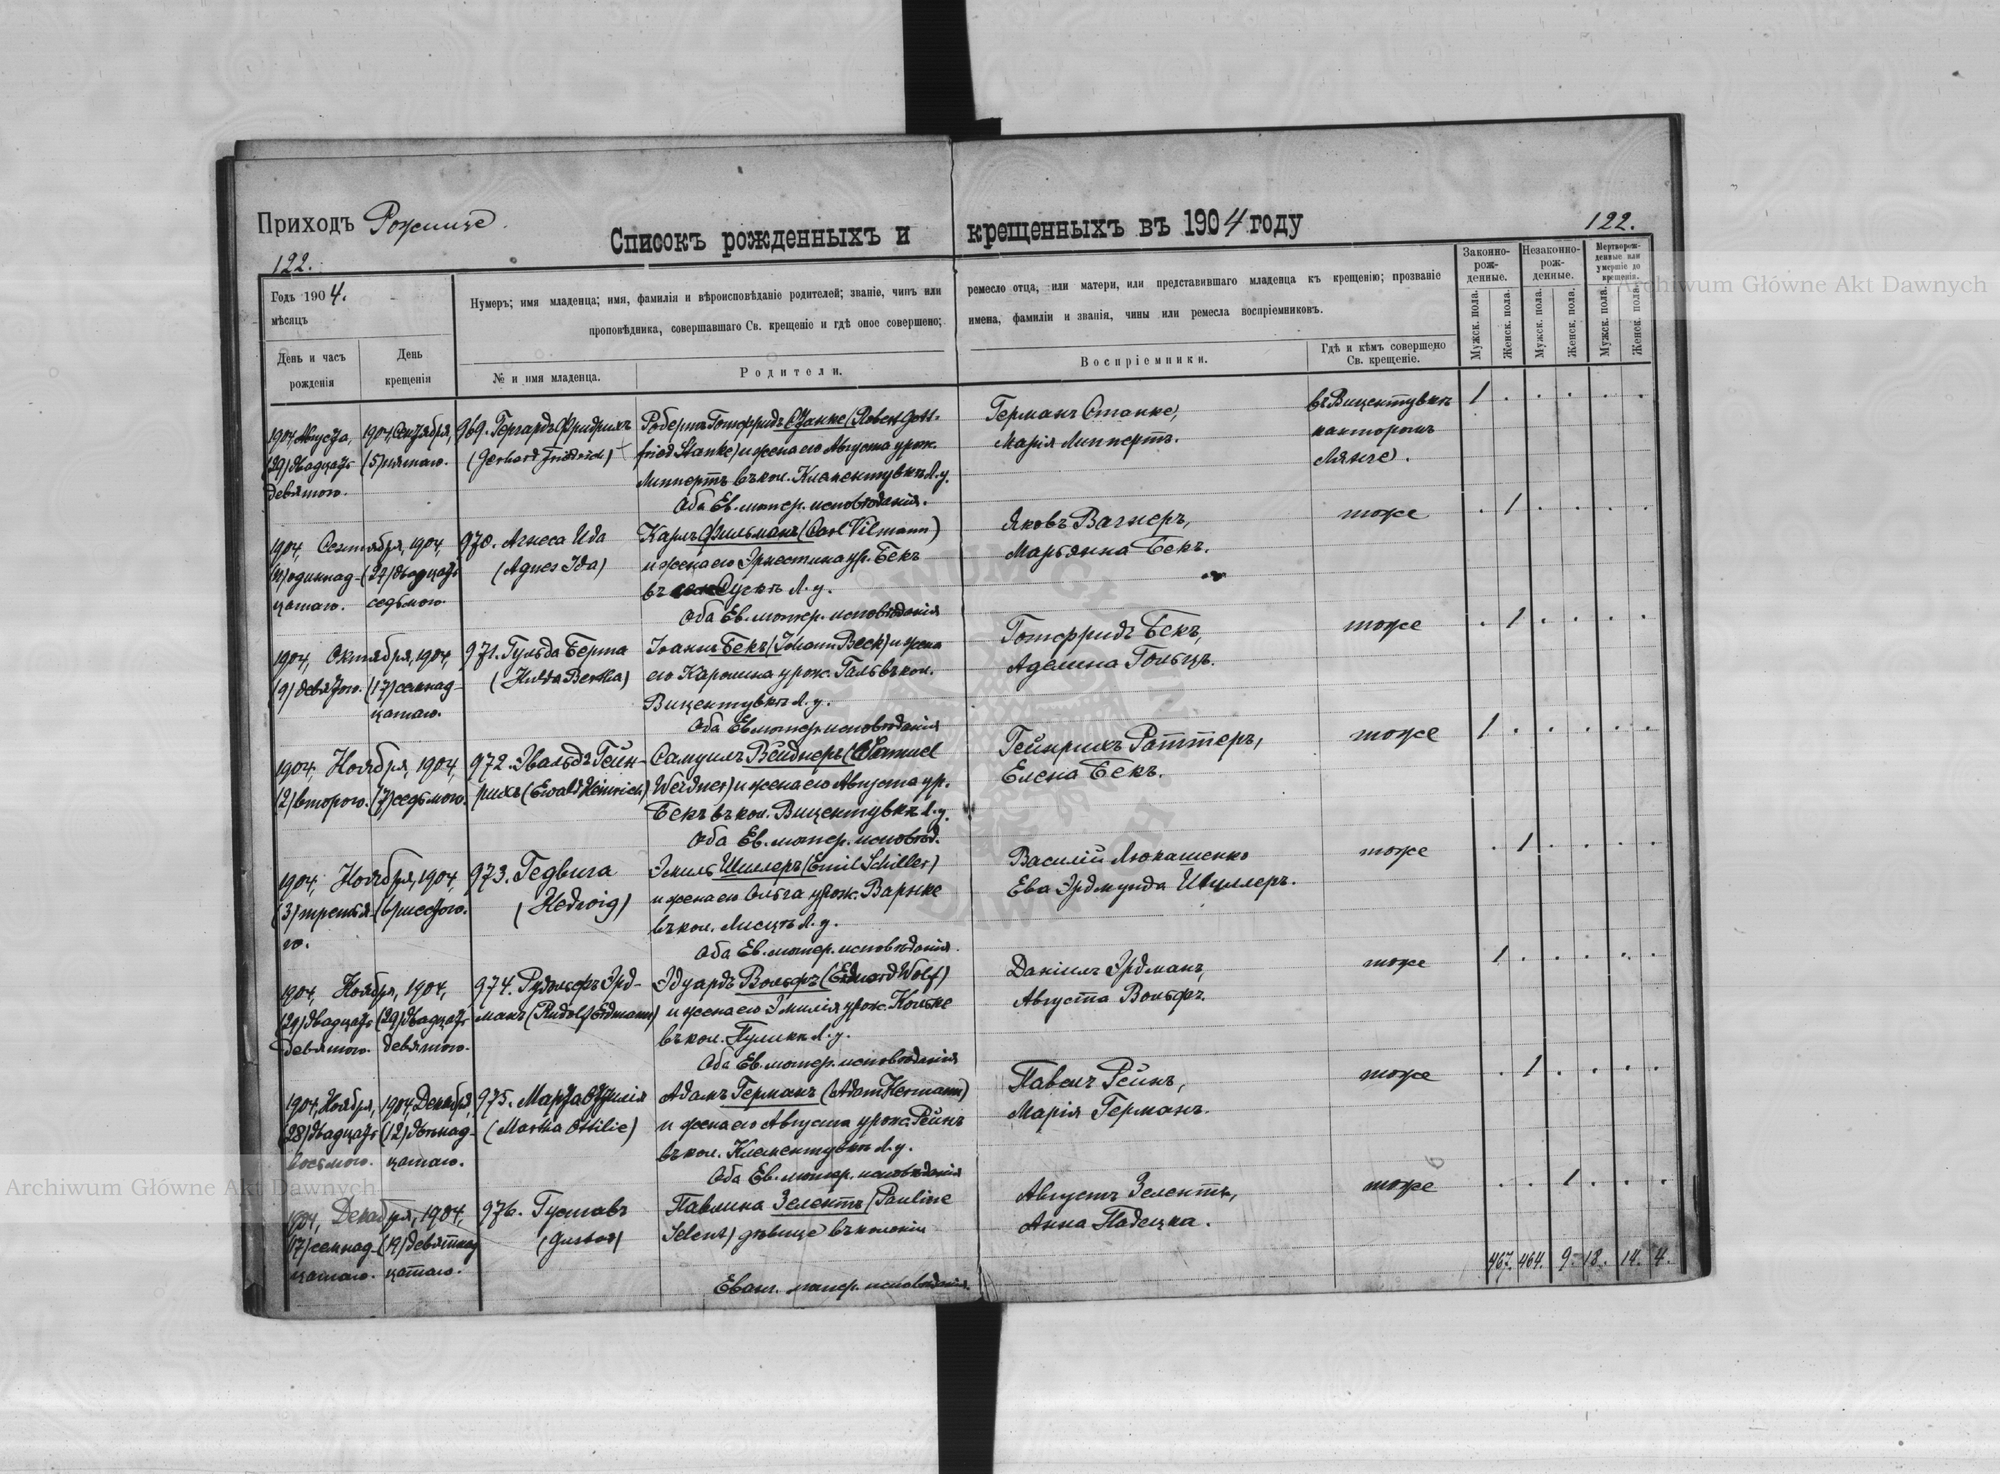 Приходъ Рожище.
Списокъ рожденныхъ и крещенныхъ въ 1904 году
122.
122.
Годъ 1904.
мѣсяцъ
День и часъ рожденія
День крещенія
Нумеръ; имя младенца; имя, фамилія и вѣроисповѣданіе родителей; званіе, чинъ или
ремесло отца, или матери, или представившаго младенца къ крещенію; прозваніе
проповѣдника, совершавшаго Св. крещеніе и гдѣ оное совершено;
имена, фамиліи и званія, чины или ремесла воспріемниковъ.
№ и имя младенца.
Родители.
Воспріемники.
Гдѣ и кѣмъ совершено Св. крещеніе.
Законно-рож-денные.
Незаконно-рож-денные.
Мертворож-денные или умершіе до крещенія.
Мужск. пола.
Женск. пола.
Мужск. пола.
Женск. пола.
Мужск. пола.
Женск. пола.
1904, Августа,
(29) двадцать
девятого.
1904, Сентября,
(5) пятаго.
969. Гергардъ Фридрихъ
(Gerhard Friedrich)
Робертъ Готфридъ Станке (Robert Gott-
fried Stanke) и жена его Августа урож.
Липпертъ въ кол. Климентувкѣ Л. у.
Оба Ев. лютер. исповѣданія.
Германъ Станке,
Марія Липпертъ.
въ Вицентувкѣ
канторомъ
Лянге.
1
1904, Сентября, 1904,
(11) одиннад-
цатаго.
(27) двадцать
седьмого.
970. Агнеса Ида
(Agnes Ida)
Карлъ Фильманъ (Carl Vilmann)
и жена его Эрнестина ур. Бекъ
въ Л. у.
Оба Ев. лютер. исповѣданія
Яковъ Вагнеръ,
Марьянна Бекъ.
тоже
1
1904, Октября, 1904,
(9) девятого.
(17) семнад-
цатаго.
971. Гульда Берта
(Hulda Bertha)
Іоаннъ Бекъ (Johann Beck) и жена
его Каролина урож. Гальвъ кол.
Вицентувкѣ Л. у.
Оба Ев. лютер. исповѣданія
Готфридъ Бекъ,
Аделина Гольцъ.
тоже
1
1904, Ноября, 1904,
(2) второго.
(7) седьмого.
972. Эвальдъ Гейн-
рихъ (Ewald Heinrich)
Самуилъ Вейднеръ (Samuel
Weidner) и жена его Августа ур.
Бекъ въ кол. Вицентувкѣ Л. у.
Оба Ев. лютер. исповѣд.
Гейнрихъ Раттеръ,
Елена Бекъ.
тоже
1
1904, Ноября, 1904,
(3) третья-
го.
(6) шестого.
973. Гедвига
(Hedwig)
Эмиль Шиллеръ (Emil Schiller)
и жена его Ольга урож. Варнке
въ кол. Лисцѣ Л. у.
Оба Ев. лютер. исповѣданія.
Василій Люкашенко
Ева Эрдмунда Шиллеръ.
тоже
1
1904, Ноября, 1904,
(29) двадцать
девятого.
(29) двадцать
девятого.
974. Рудольфъ Эрд-
манъ (Rudolf Erdmann)
Эдуардъ Вольфъ (Eduard Wolf)
и жена его Эмилія урож. Кольке
въ кол. Л. у.
Оба Ев. лютер. исповѣданія
Даніилъ Эрдманъ,
Августа Вольфъ.
тоже
1
1904, Ноября,
(28) двадцать
восьмого.
1904, Декабря,
(12) двѣнад-
цатаго.
975. Марта Оттилія
(Martha Ottilie)
Адамъ Германъ (Adam Hermann)
и жена его Августа урож. Рейнъ
въ кол. Климентувкѣ Л. у.
Оба Ев. лютер. исповѣданія
Павелъ Рейнъ,
Марія Германъ.
тоже
1
1904, Декабря, 1904,
(17) семнад-
цатаго.
(19) девятнад-
цатаго.
976. Густавъ
(Gustav)
Павлина Зелентъ (Pauline
Selent) дѣвица въ колоніи
Еванг. лютер. исповѣданія.
Августъ Зелентъ,
Анна Падецка.
тоже
1
467. 464. 9. 18. 14. 4.
Archiwum Główne Akt Dawnych
Archiwum Główne Akt Dawnych